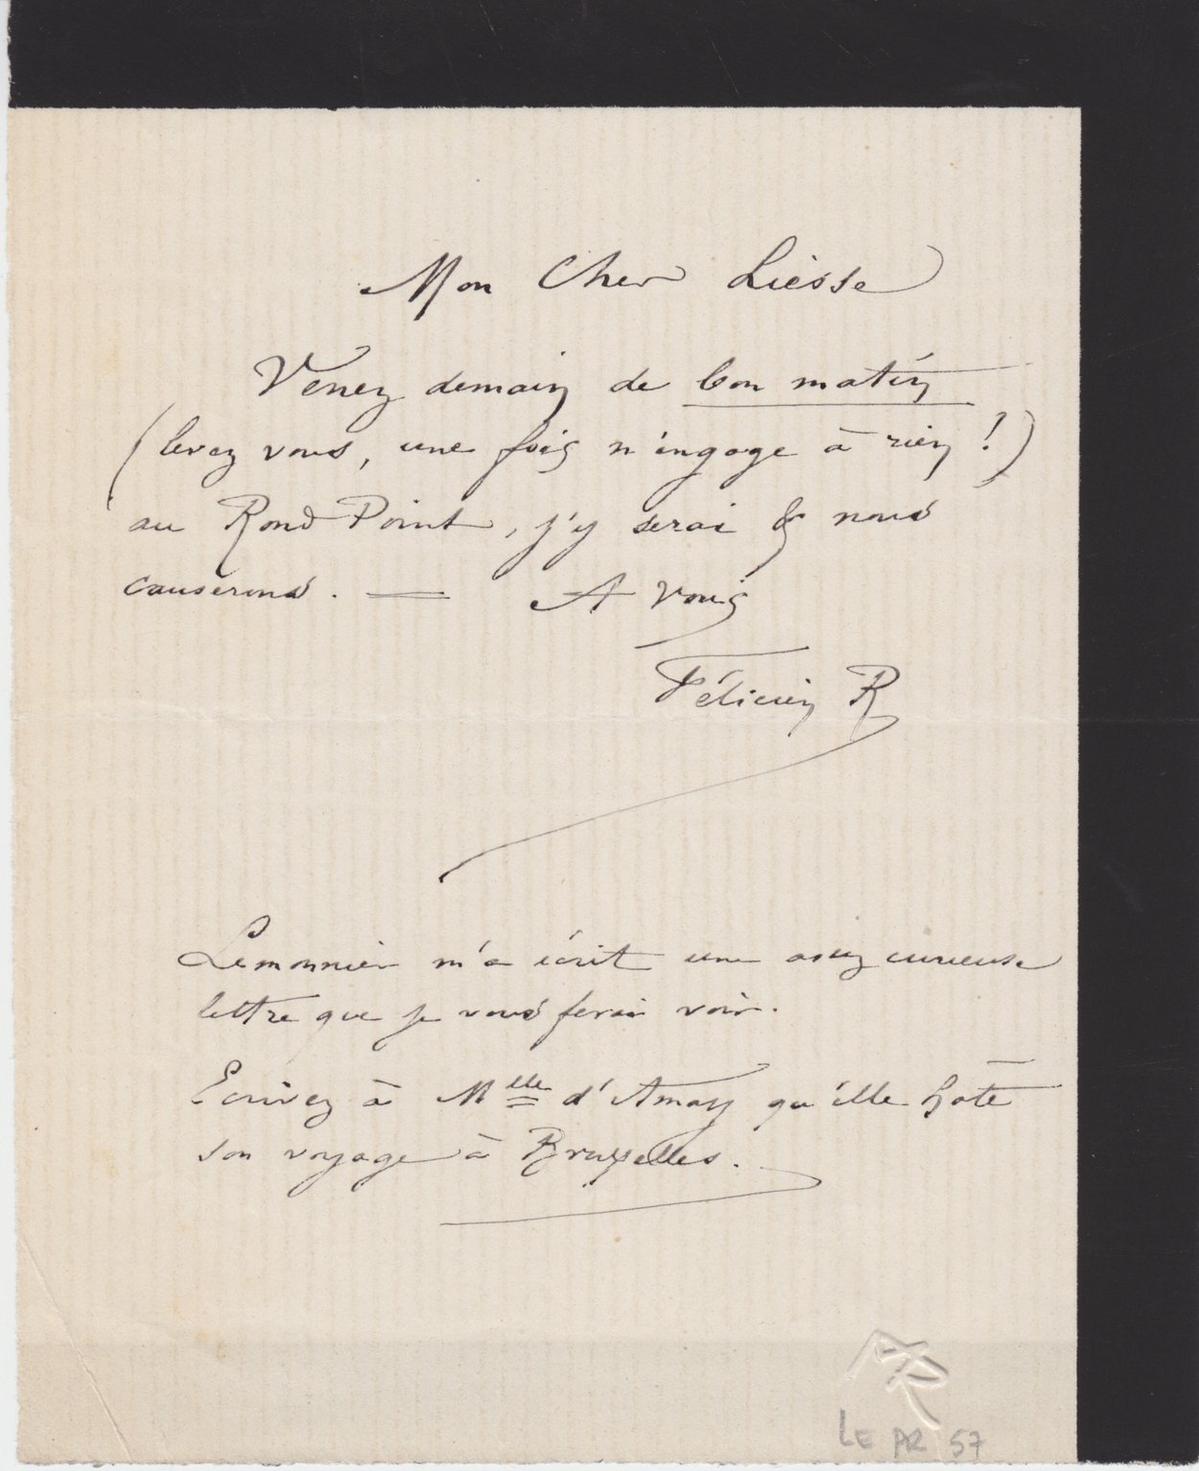 Mon Cher Liesse
Venez demain de bon matin
(levez vous, une fois n'engage à rien !)
au Rond Point, j'y serai & nous
causerons. — A Vous
Félicien R
Lemonnier m'a écrit une assez curieuse
lettre que je vous ferai voir.
Ecrivez à Mlle d'Amay qu'elle hâte
son voyage à Bruxelles.
LE PR 57